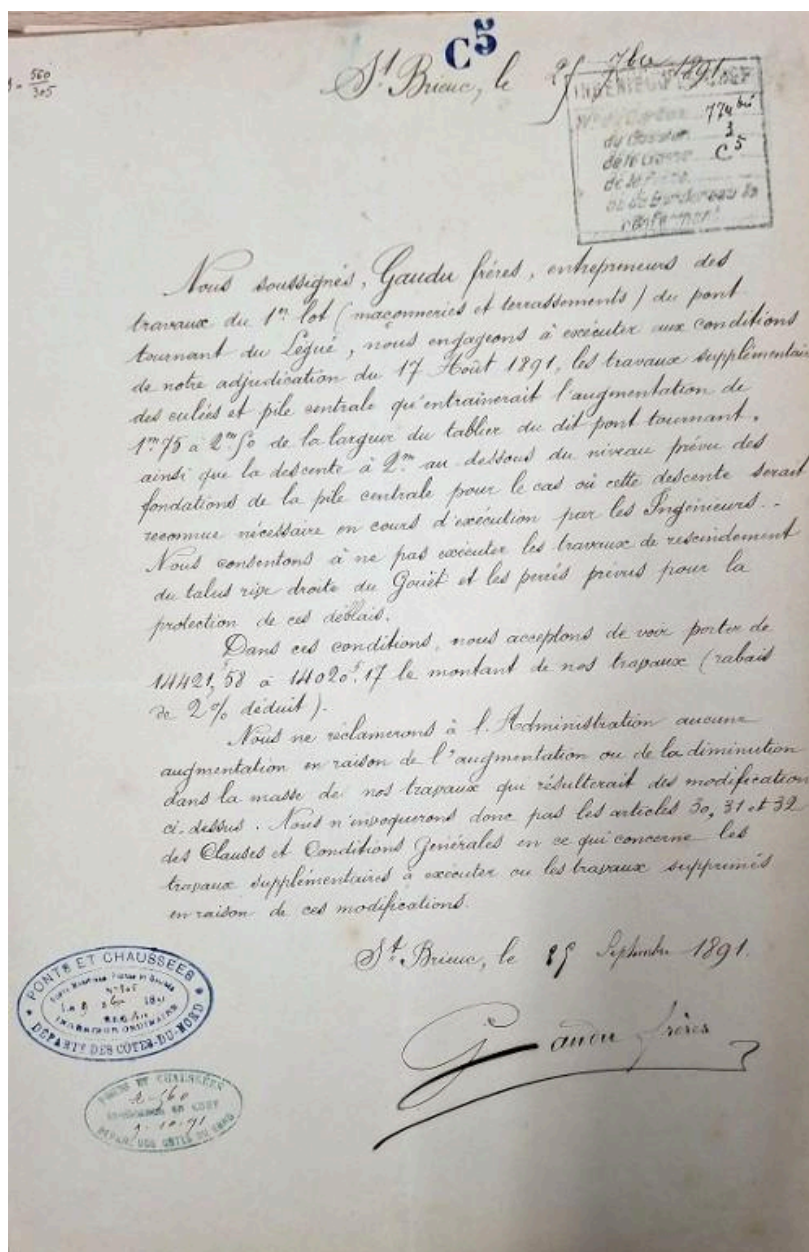 C5
560
305
St Brieuc, le 25 7bre 1891
INGÉNIEUR EN CHEF
774 bis
du Dossier 3
de la Liasse C5
de la Pièce
ou du Bordereau la
renfermant
Nous soussignés, Gaudu frères, entrepreneurs des
travaux du 1er lot (maçonneries et terrassements) du pont
tournant du Légué, nous engageons à exécuter aux conditions
de notre adjudication du 17 Août 1891, les travaux supplémentair
des culées et pile centrale qu'entraînerait l'augmentation de
1m.75 à 2m.50 de la largeur du tablier du dit pont tournant,
ainsi que la descente à 2m. au dessous du niveau prévu des
fondations de la pile centrale pour le cas où cette descente serait
reconnue nécessaire en cours d'exécution par les Ingénieurs. -
Nous consentons à ne pas exécuter les travaux de rescindement
du talus rive droite du Gouët et les perrés prévus pour la
protection de ces déblais.
Dans ces conditions, nous acceptons de voir porter de
14421f,58 à 14020f.17 le montant de nos travaux (rabais
de 2% déduit).
Nous ne réclamerons à l'Administration aucune
augmentation en raison de l'augmentation ou de la diminution
dans la masse de nos travaux qui résulterait des modification
ci-dessus. Nous n'invoquerons donc pas les articles 30, 31 et 32
des Clauses et Conditions Générales en ce qui concerne les
travaux supplémentaires à exécuter ou les travaux supprimés
en raison de ces modifications.
St Brieuc, le 25 Septembre 1891.
Gaudu frères
PONTS ET CHAUSSÉES
No 305
INGÉNIEUR ORDINAIRE
DÉPARTT DES CÔTES-DU-NORD
PONTS ET CHAUSSÉES
A-560
INGÉNIEUR EN CHEF
9-10-91
DÉPART. DES CÔTES DU NORD